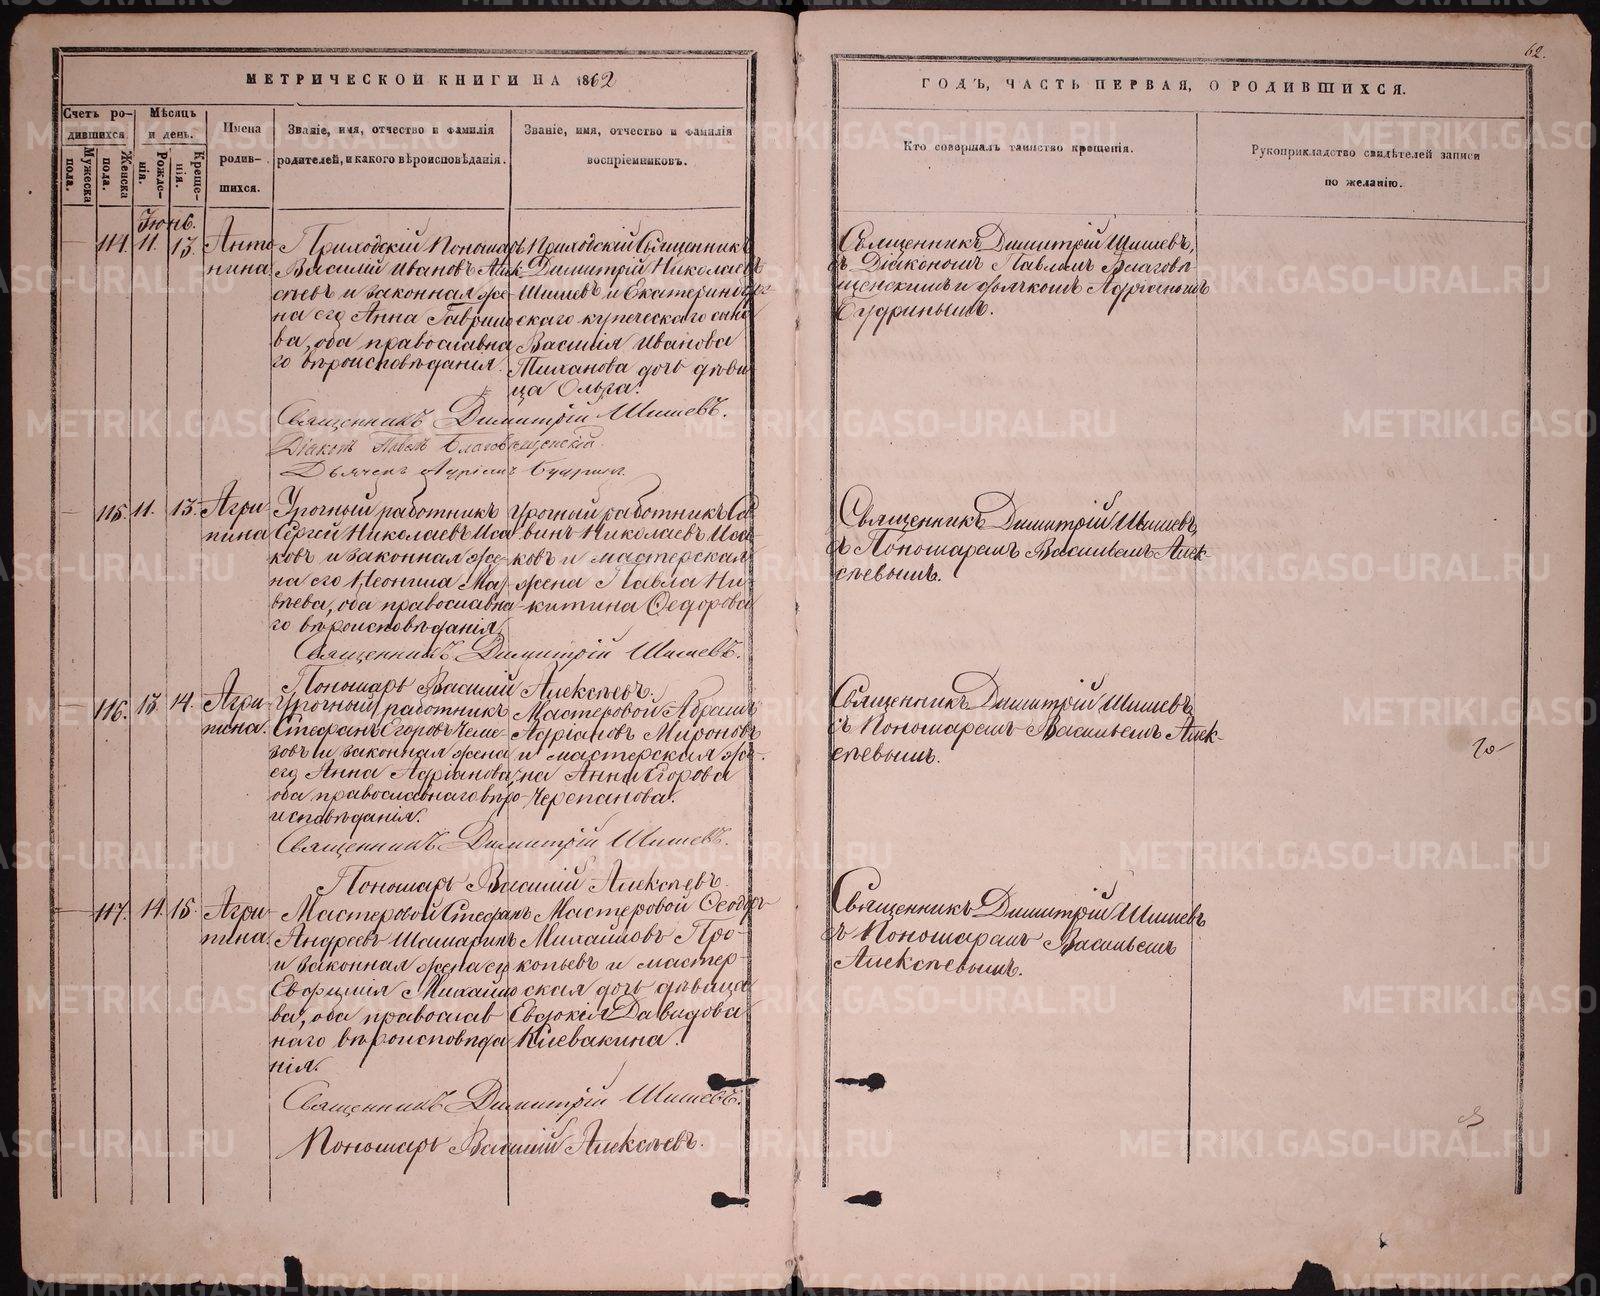 62.
МЕТРИЧЕСКОЙ КНИГИ НА 1862
ГОДЪ, ЧАСТЬ ПЕРВАЯ, О РОДИВШИХСЯ.
Счетъ ро-
дившихся.
Мужеска
пола.
Женска
пола.
Мѣсяцъ
и день.
Рожде-
нія.
Креще-
нія.
Имена
родив-
шихся.
Званіе, имя, отчество и фамилія
родителей, и какого вѣроисповѣданія.
Званіе, имя, отчество и фамилія
воспріемниковъ.
Кто совершалъ таинство крещенія.
Рукоприкладство свидѣтелей записи
по желанію.
Іюнь.
114. 11. 13.
Анто-
нина.
Приходскій Пономарь
Василій Ивановъ Алек-
сѣевъ и законная же-
на его Анна Гаврило-
ва, оба православна
го вѣроисповѣданія.
Приходскій Священникъ
Димитрій Николаевъ
Шишевъ и Екатеринбур-
скаго купеческаго сына
Василія Иванова
Тиханова дочь дѣви
ца Ольга.
Священникъ Димитрій Шишевъ,
съ Діакономъ Павломъ Благовѣ-
щенскимъ и дьячкомъ Адріаномъ
Будринымъ.
Священникъ Димитрій Шишевъ.
Діаконъ Павелъ Благовѣщенскій.
Дьячекъ Адріанъ Будринъ.
115. 11. 13.
Агри-
пина
Урочный работникъ
Сергей Николаевъ Иса
ковъ и законная же-
на его Неонила Мат-
вѣева, оба православна
го вѣроисповѣданія.
Урочный работникъ Са-
винъ Николаевъ Иса-
ковъ и мастерская
жена Павла Ни-
китина Ѳедорова
Священникъ Димитрій Шишевъ,
съ Пономаремъ Васильемъ Алек-
сѣевымъ.
Священникъ Димитрій Шишевъ.
Пономарь Василій Алексѣевъ.
116. 13. 14.
Агри-
пина.
Урочный работникъ
Стефанъ Егоровъ Чеме-
зовъ и законная жена
его Анна Адріанова,
оба православнаго вѣро-
исповѣданія.
Мастеровой Абрамъ
Адріановъ Мироновъ
и мастерская же-
на Анна Егорова
Черепанова.
Священникъ Димитрій Шишевъ
съ Пономаремъ Васильемъ Алек-
сѣевымъ.
Священникъ Димитрій Шишевъ.
Пономарь Василій Алексѣевъ.
117. 14. 15.
Агри-
пина.
Мастеровой Стефанъ
Андреевъ Шамаринъ
и законная жена его
Евфимія Михайло
ва, оба православ
наго вѣроисповѣда
нія.
Мастеровой Ѳеодоръ
Михайловъ Про-
копьевъ и мастер-
ская дочь дѣвица
Евдокія Давидова
Клевакина.
Священникъ Димитрій Шишевъ
съ Пономаремъ Васильемъ
Алексѣевымъ.
Священникъ Димитрій Шишевъ.
Пономарь Василій Алексѣевъ.
METRIKI.GASO-URAL.RU